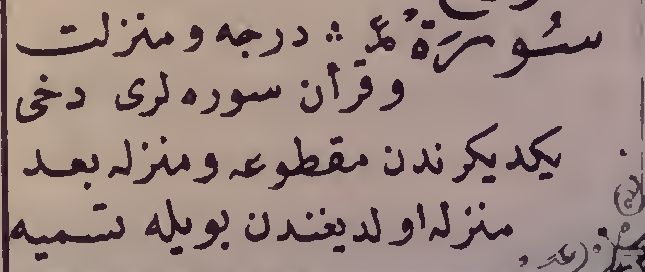 سُورَةٌ ع ؞ درجه و منزلت
و قرأن سوره لرى دخى
يكديكرندن مقطوعه و منزله بعد
منزله اولديغندن بويله تسميه